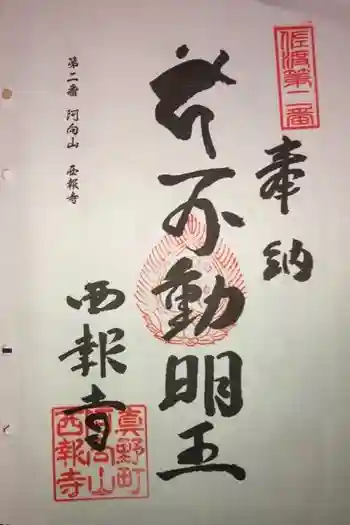 佐渡第二番
奉納
不動明王
西報寺
真野町
阿向山
西報寺
第二番 阿向山 西報寺